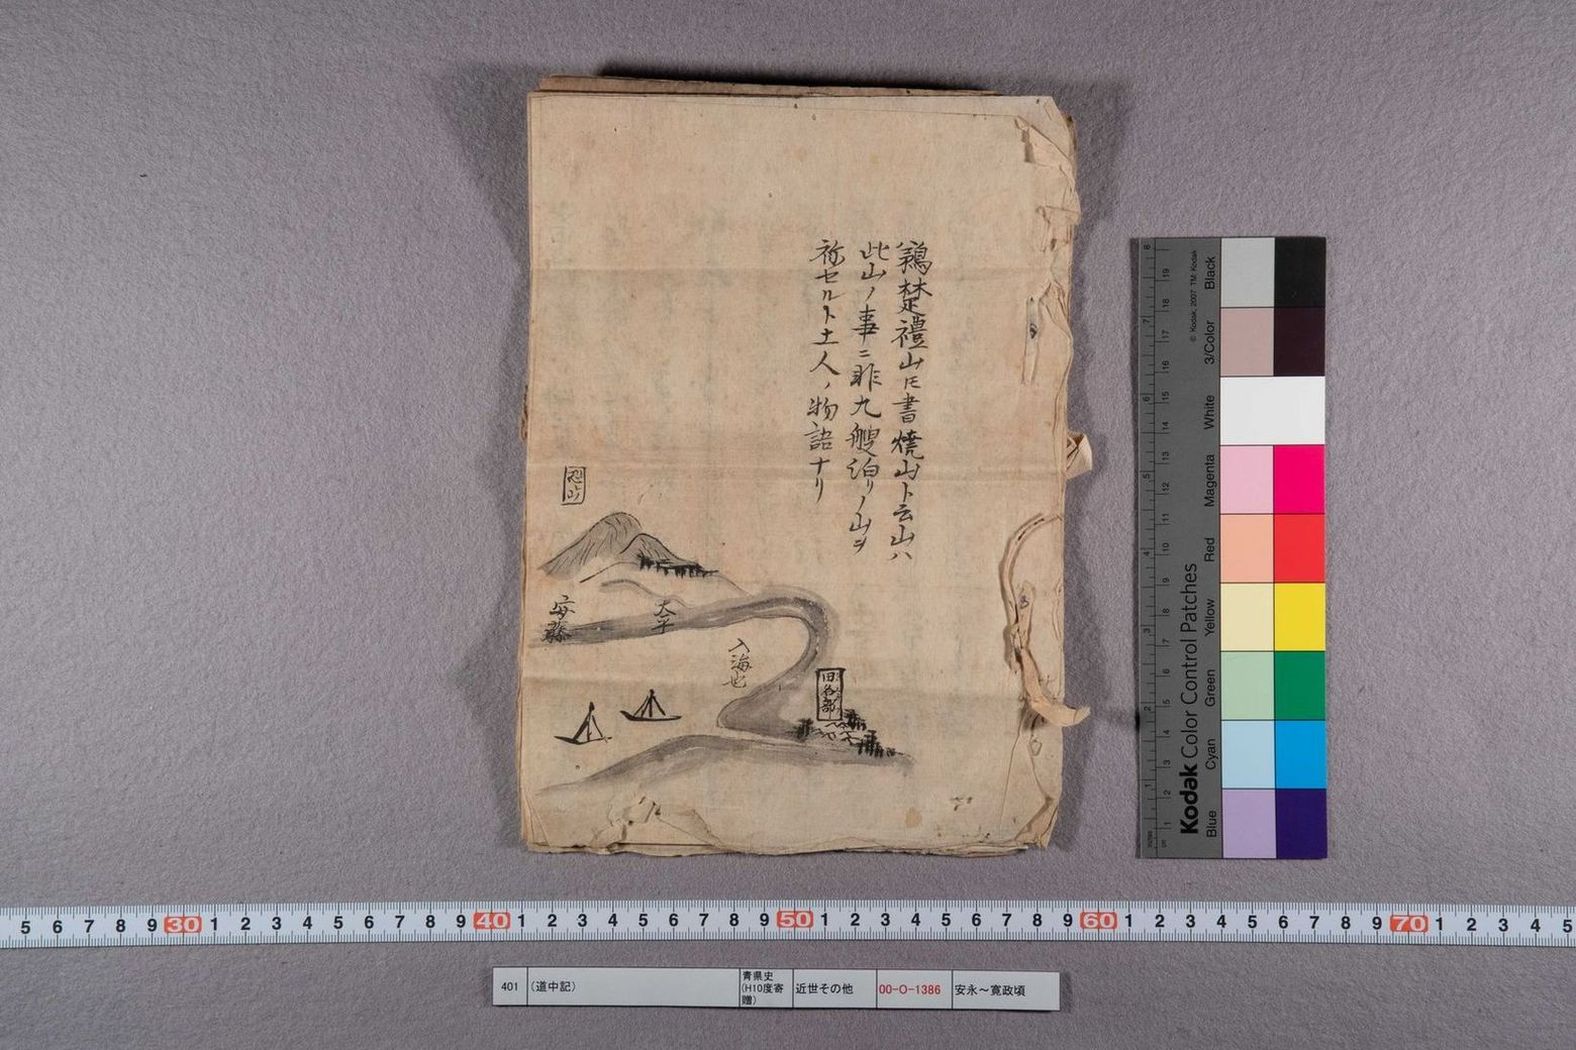 鵜楚禮山𪜈書焼山ト云山ハ
此山ノ事ニ非九艘泊リノ山ヲ
称セルト土人ノ物語ナリ
恐山
安藤
大平
入海也
田名部
Kodak Color Control Patches
© Kodak, 2007 TM: Kodak
Blue Cyan Green Yellow Red Magenta White 3/Color Black
5 6 7 8 9 30 1 2 3 4 5 6 7 8 9 40 1 2 3 4 5 6 7 8 9 50 1 2 3 4 5 6 7 8 9 60 1 2 3 4 5 6 7 8 9 70 1 2 3 4 5
401 (道中記) 青県史(H10度寄贈) 近世その他 00-O-1386 安永～寛政頃